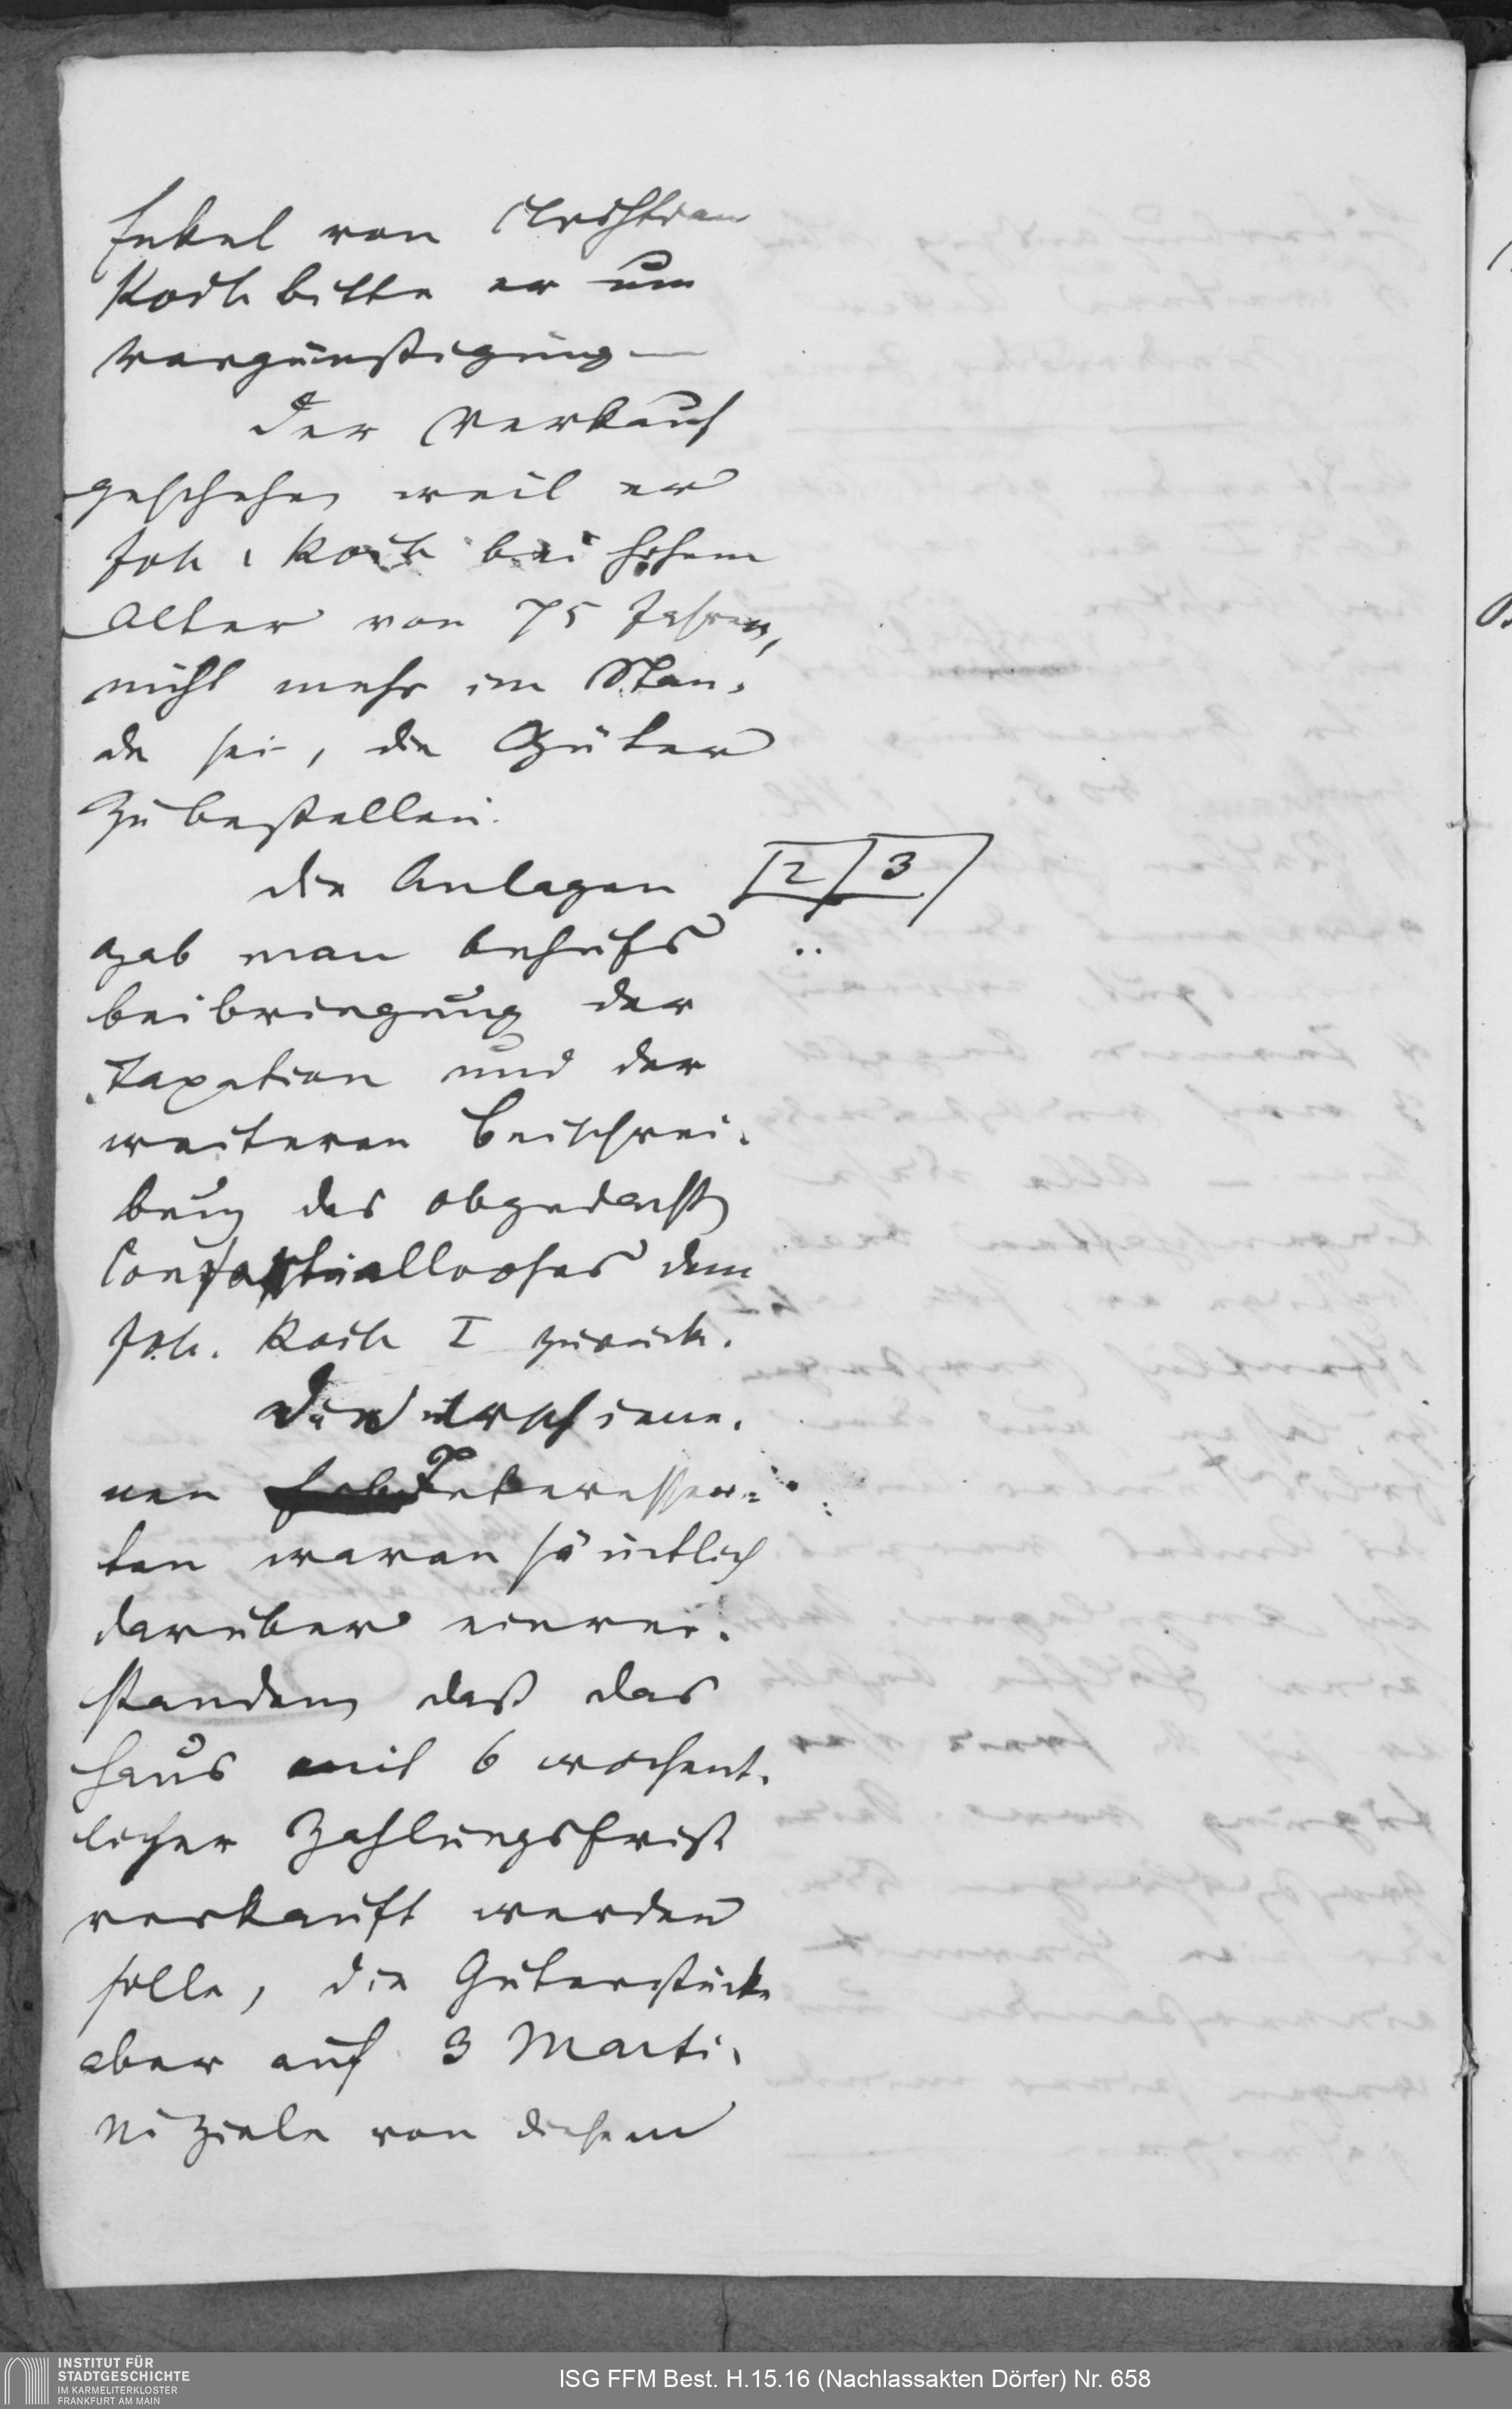 Enkel von Christian
Koch bitte er um
Vergünstigung —
Der Verkauf
geschehe, weil er
Joh. Koch bei hohem
Alter von 75 Jahren,
nicht mehr im Stan-
de sei, die Güter
zu bestellen.
Die Anlagen 2 3
gab man behufs
Beibringung der
Taxation und der
weiteren Beischrei-
bung des obgedacht
dem
Joh. Koch I zurück.
Die erschiene-
nen Interessen-
ten waren sämtlich
darüber einver-
standen, daß das
Haus mit 6 wochent-
licher Zahlungsfrist
verkauft werden
solle, die Güterstücke
aber auf 3 Marti-
ni Ziele von diesem
INSTITUT FÜR
STADTGESCHICHTE
IM KARMELITERKLOSTER
FRANKFURT AM MAIN
ISG FFM Best. H.15.16 (Nachlassakten Dörfer) Nr. 658